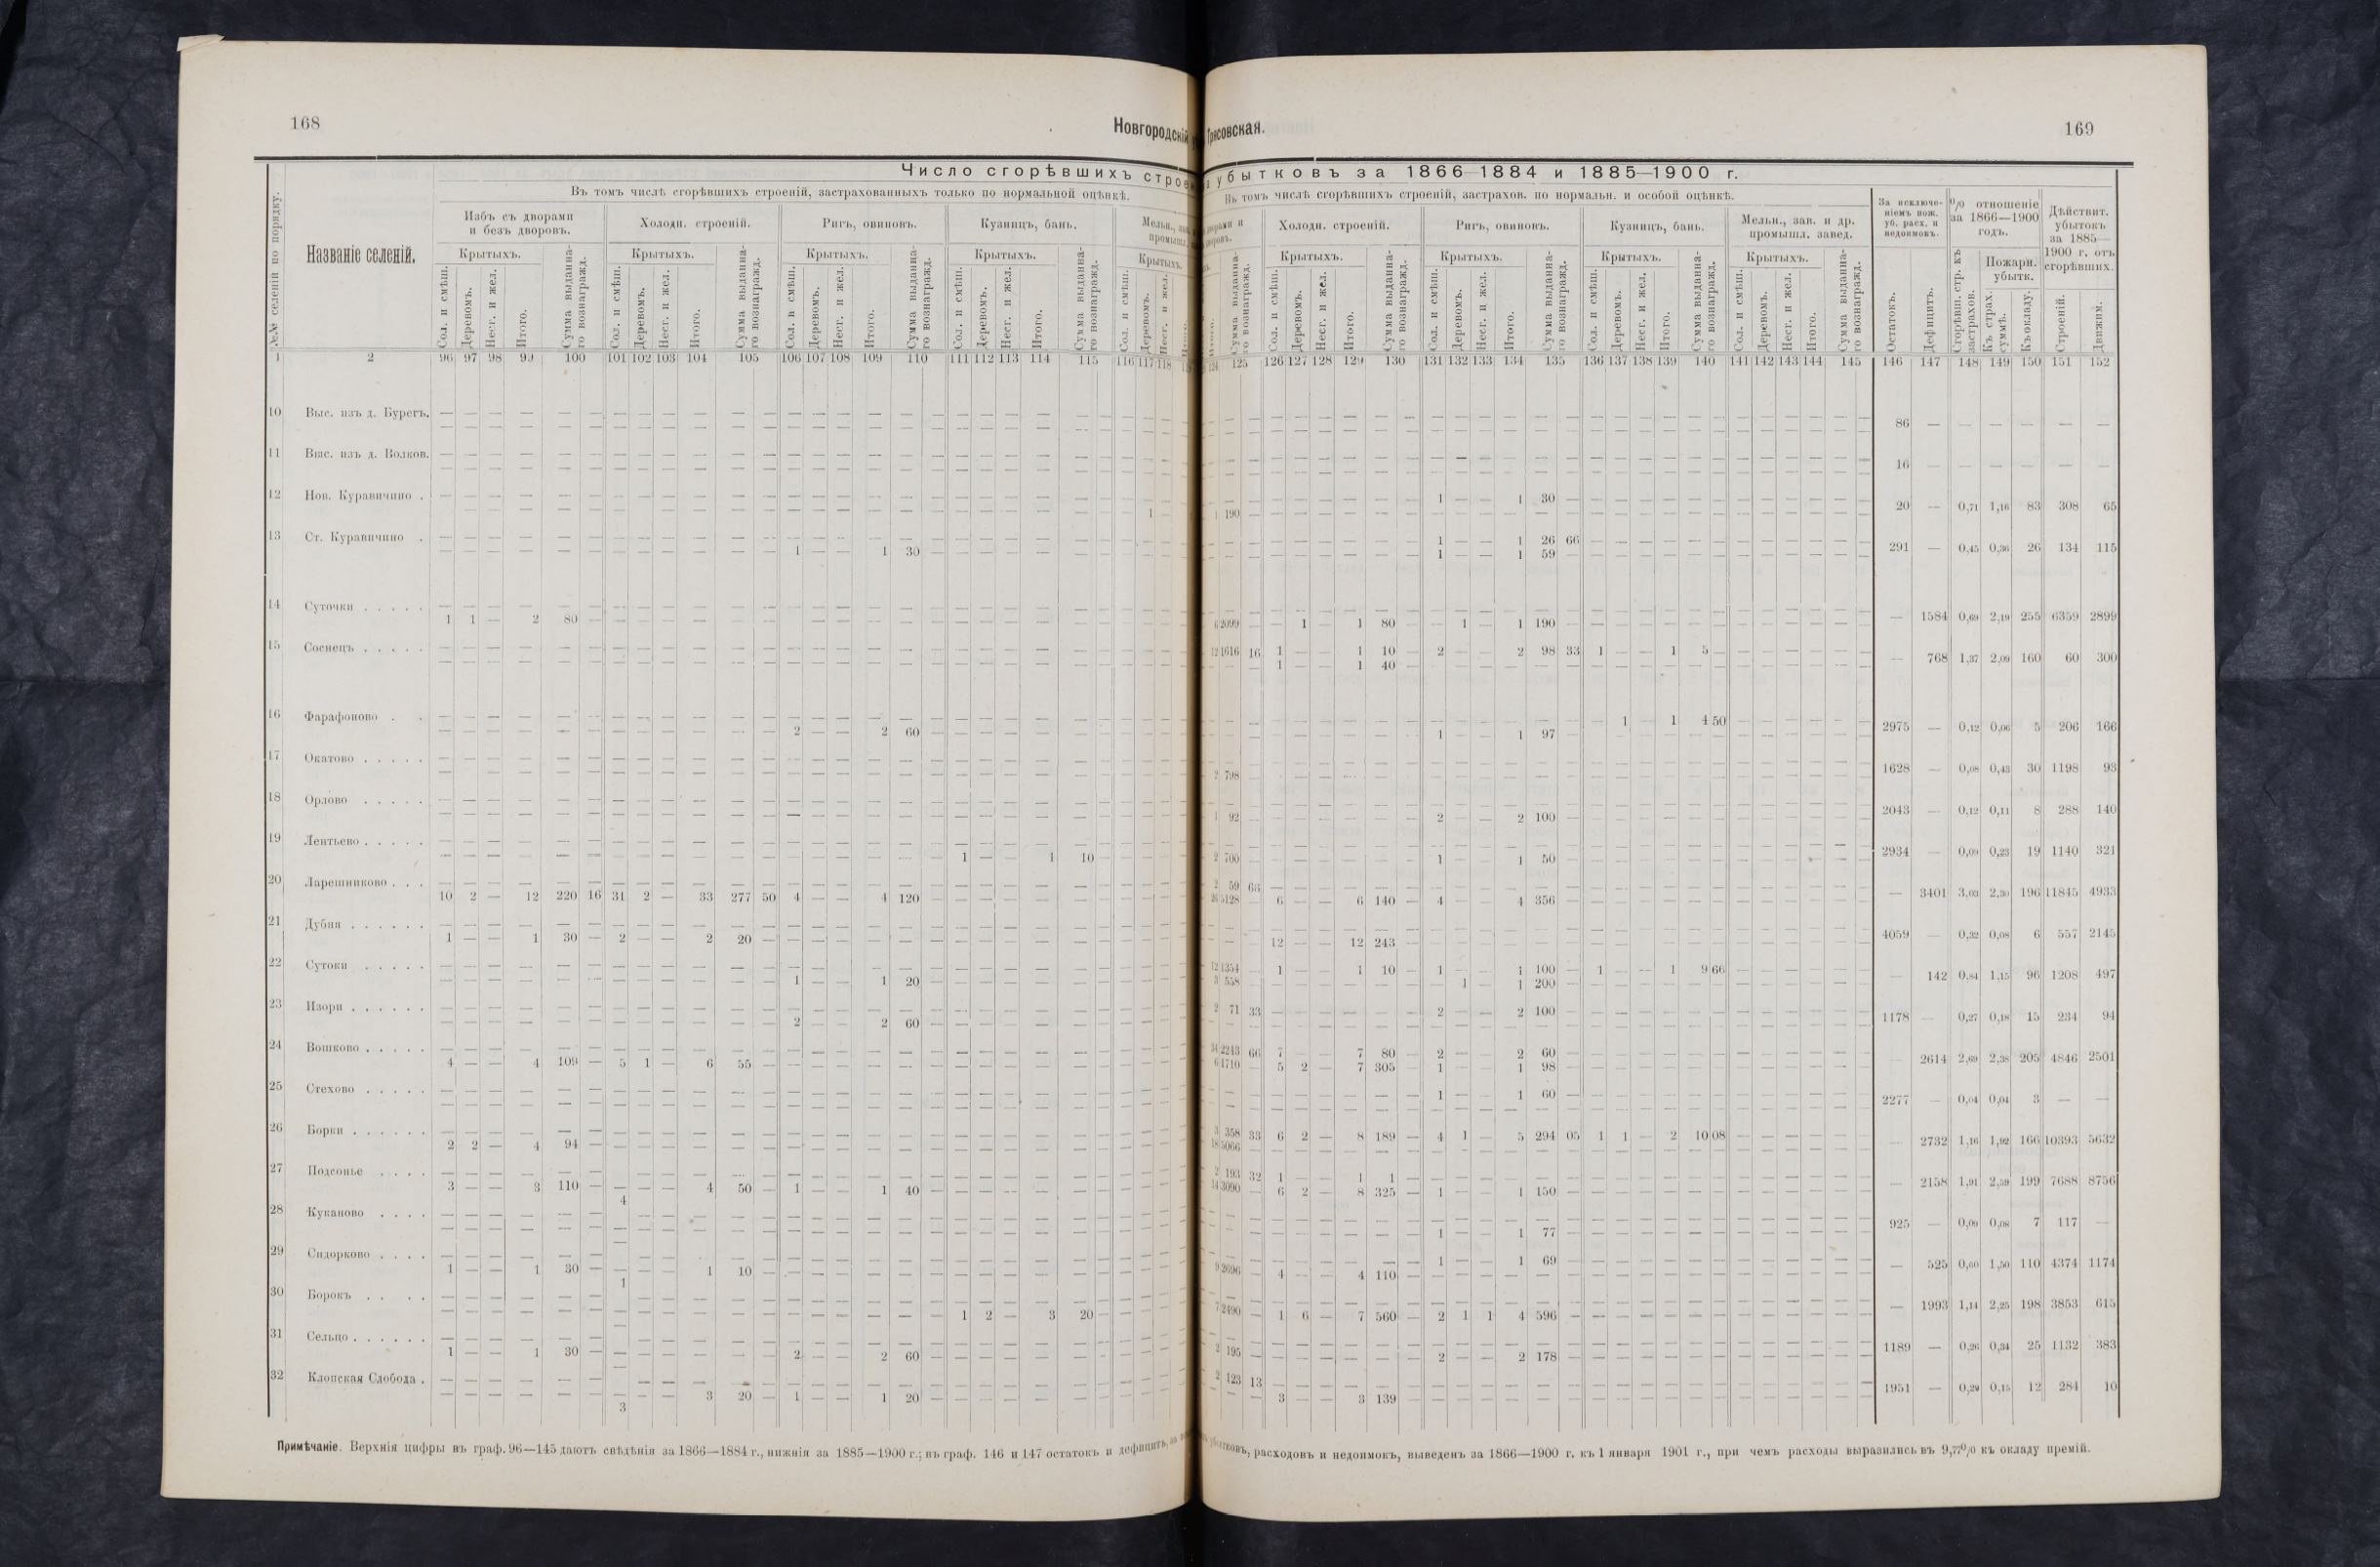 168
Новгородскій
Трясовская.
169
Число сгорѣвшихъ строе
убытковъ за 1866—1884 и 1885—1900 г.
№№ селеній по порядку.
Названіе селеній.
Въ томъ числѣ сгорѣвшихъ строеній, застрахованныхъ только по нормальной оцѣнкѣ.
Въ томъ числѣ сгорѣвшихъ строеній, застрахов. по нормальн. и особой оцѣнкѣ.
Избъ съ дворами и безъ дворовъ.
Холодн. строеній.
Ригъ, овиновъ.
Кузницъ, бань.
Мельн.,
промышл.
Холодн. строеній.
Ригъ, овиновъ.
Кузницъ, бань.
Мельн., зав. и др. промышл. завед.
За исключеніемъ пож. уб. расх. и недоимокъ.
% отношеніе за 1866—1900 годъ.
Дѣйствит. убытокъ за 1885—1900 г. отъ сгорѣвшихъ.
Крытыхъ. Крытыхъ. Крытыхъ. Крытыхъ. Крытыхъ. Крытыхъ. Крытыхъ. Крытыхъ. Крытыхъ.
Пожарн. убытк.
Сол. и смѣш. Деревомъ. Несг. и жел. Итого. Сумма выданнаго вознагражд.
Остатокъ. Дефицитъ. Сгорѣвш. стр. къ застрахов. Къ страх. суммѣ. Къ окладу. Строеній. Движим.
1 2 96 97 98 99 100 101 102 103 104 105 106 107 108 109 110 111 112 113 114 115 116 117 118
124 125 126 127 128 129 130 131 132 133 134 135 136 137 138 139 140 141 142 143 144 145 146 147 148 149 150 151 152
10 Выс. изъ д. Бурегъ. — — — — —
86 — — — — — —
11 Выс. изъ д. Волков. — — — — —
16 — — — — — —
12 Нов. Куравичино . — — — — —
1 — — 1 30 —
1 — 1 190
20 — 0,71 1,16 83 308 65
13 Ст. Куравичино . — — — — —
1 — — 1 26 66
1 — — 1 30 — 1 — — 1 59
291 — 0,45 0,36 26 134 115
14 Суточки . . . . .
1 1 — 2 80 — 6 2099 — — 1 — 1 80 — — 1 — 1 190
— 1584 0,69 2,19 255 6359 2899
15 Соснецъ . . . . .
12 1616 16 1 — — 1 10 — 2 — — 2 98 33 1 — — 1 5 —
1 — — 1 40 —
— 768 1,37 2,09 160 60 300
16 Фарафоново . .
— 1 — 1 4 50
2 — — 2 60 — 1 — — 1 97
2975 — 0,12 0,06 5 206 166
17 Окатово . . . . .
2 798
1628 — 0,08 0,43 30 1198 93
18 Орлово . . . . .
1 92 — 2 — — 2 100
2043 — 0,12 0,11 8 288 140
19 Лентьево . . . . .
1 — — 1 10 — 2 700 — 1 — — 1 50
2934 — 0,09 0,23 19 1140 321
20 Ларешниково . . .
2 59 66
10 2 — 12 220 16 31 2 — 33 277 50 4 — — 4 120 — 26 5128 — 6 — — 6 140 — 4 — — 4 356
— 3401 3,03 2,30 196 11845 4933
21 Дубня . . . . . .
1 — — 1 30 — 2 — — 2 20 — 12 — — 12 243 —
4059 — 0,32 0,08 6 557 2145
22 Сутоки . . . . .
12 1354 — 1 — — 1 10 — 1 — — 1 100 — 1 — — 1 9 66
1 — — 1 20 — 3 558 — — 1 — 1 200
— 142 0,84 1,15 96 1208 497
23 Изори . . . . . .
2 71 33 2 — — 2 100
2 — — 2 60 —
1178 — 0,27 0,18 15 234 94
24 Вошково . . . . .
34 2243 66 7 — — 7 80 — 2 — — 2 60
4 — — 4 109 — 5 1 — 6 55 — 6 1710 — 5 2 — 7 305 — 1 — — 1 98
— 2614 2,69 2,38 205 4846 2501
25 Стехово . . . . .
1 — — 1 60
2277 — 0,04 0,04 3 — —
26 Борки . . . . . .
3 358 33 6 2 — 8 189 — 4 1 — 5 294 05 1 1 — 2 10 08
2 2 — 4 94 — 18 5066 —
— 2732 1,16 1,92 166 10393 5632
27 Подсонье . . . .
2 193 32 1 — — 1 1 —
3 — — 3 110 — 4 — — 4 50 — 1 — — 1 40 — 14 3090 — 6 2 — 8 325 — 1 — — 1 150
— 2158 1,91 2,59 199 7688 8756
28 Куканово . . . .
1 — — 1 77
925 — 0,09 0,08 7 117 —
29 Сидорково . . . .
1 — — 1 69
1 — — 1 30 — 1 — — 1 10 — 9 2696 — 4 — — 4 110 —
— 525 0,60 1,50 110 4374 1174
30 Борокъ . . . .
1 2 — 3 20 — 7 2490 — 1 6 — 7 560 — 2 1 1 4 596
— 1993 1,14 2,25 198 3853 615
31 Сельцо . . . . . .
1 — — 1 30 — 2 — — 2 60 — 2 195 — 2 — — 2 178
1189 — 0,26 0,34 25 1132 383
32 Клопская Слобода .
2 123 13
3 — — 3 20 — 1 — — 1 20 — 3 — — 3 139 —
1951 — 0,29 0,15 12 284 10
Примѣчаніе. Верхнія цифры въ граф. 96—145 даютъ свѣдѣнія за 1866—1884 г., нижнія за 1885—1900 г.; въ граф. 146 и 147 остатокъ и дефицитъ, за
убытковъ, расходовъ и недоимокъ, выведенъ за 1866—1900 г. къ 1 января 1901 г., при чемъ расходы выразились въ 9,77% къ окладу премій.